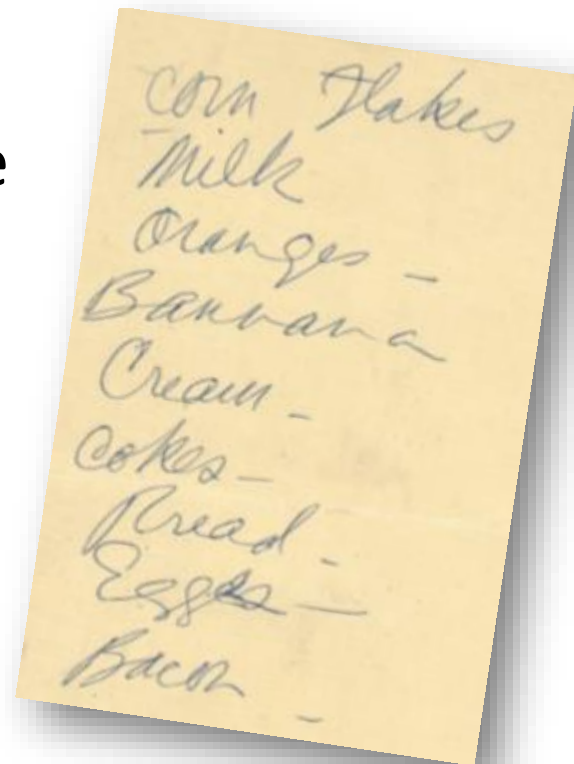 e
Corn Flakes
Milk
Oranges -
Bannana
Cream -
Cokes -
Bread -
Eggs -
Bacon -